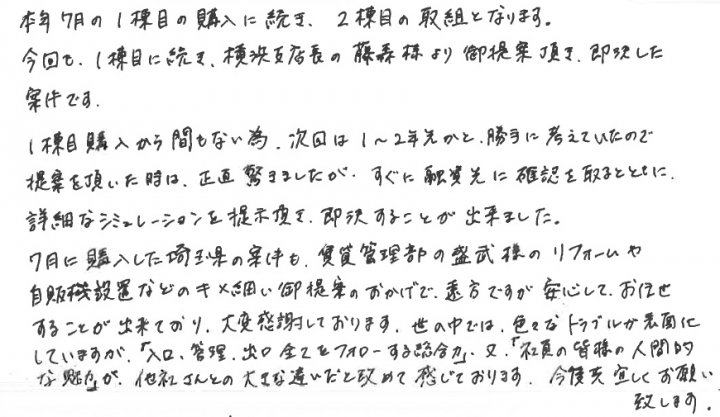 本年7月の1棟目の購入に続き、2棟目の取組となります。
今回も、1棟目に続き、横浜支店長の藤森様より御提案頂き、即決した
案件です。
1棟目購入から間もない為、次回は1〜2年先かと、勝手に考えていたので
提案を頂いた時は、正直驚きましたが、すぐに融資先に確認を取るとともに、
詳細なシミュレーションを提示頂き、即決することが出来ました。
7月に購入した埼玉県の案件も、賃貸管理部の盛武様のリフォームや
自販機設置などのキメ細い御提案のおかげで、遠方ですが安心して、お任せ
することが出来ており、大変感謝しております。世の中では、色々なトラブルが表面に
していますが、「入口、管理、出口全てをフォローする総合力」、又、「社員の皆様の人間的
な魅力」が、他社さんとの大きな違いだと改めて感じております。今後共宜しくお願い
致します。